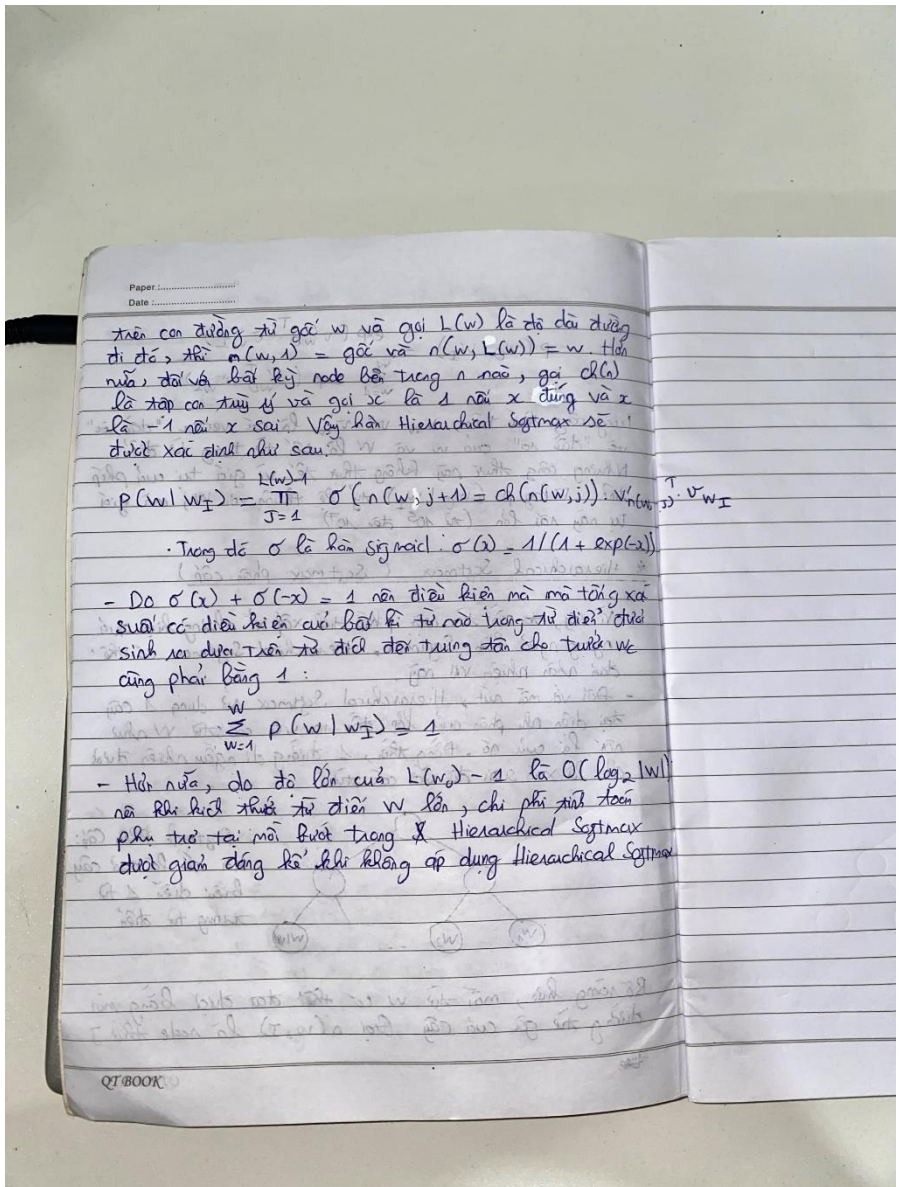 Paper :............................
Date :.............................
trên con đường từ gốc w và gọi L(w) là độ dài đường
đi đó, thì n(w, 1) = gốc và n(w, L(w)) = w. Hơn
nữa, đối với bất kỳ node bên trong n nào, gọi ch(n)
là tập con tuỳ ý và gọi x là 1 nếu x đúng và x
là -1 nếu x sai. Vậy hàn Hierarchical Softmax sẽ
được xác định như sau.
P(w | w_I) = ∏_{J=1}^{L(w)-1} σ(n(w, j+1) = ch(n(w, j)). v'_{n(w, j)}^T . v_{w_I}
· Trong đó σ là hàn sigmoid : σ(x) = 1/(1 + exp(-x))
- Do σ(x) + σ(-x) = 1 nên điều kiện mà mà tổng xá
suất có điều kiện của bất kì từ nào trong từ điển được
sinh ra dựa trên từ đích đến trung tân cho trước w_c
cũng phải bằng 1 :
∑_{w=1}^{W} P(w | w_I) = 1
- Hơn nữa, do độ lớn của L(w_o) - 1 là O(log_2 |w|)
nên khi kích thước từ điển W lớn, chi phí tính toán
phụ trợ tại mỗi bước trong Hierarchical Softmax
được giảm đáng kể khi không áp dụng Hierarchical Softmax
QT BOOK